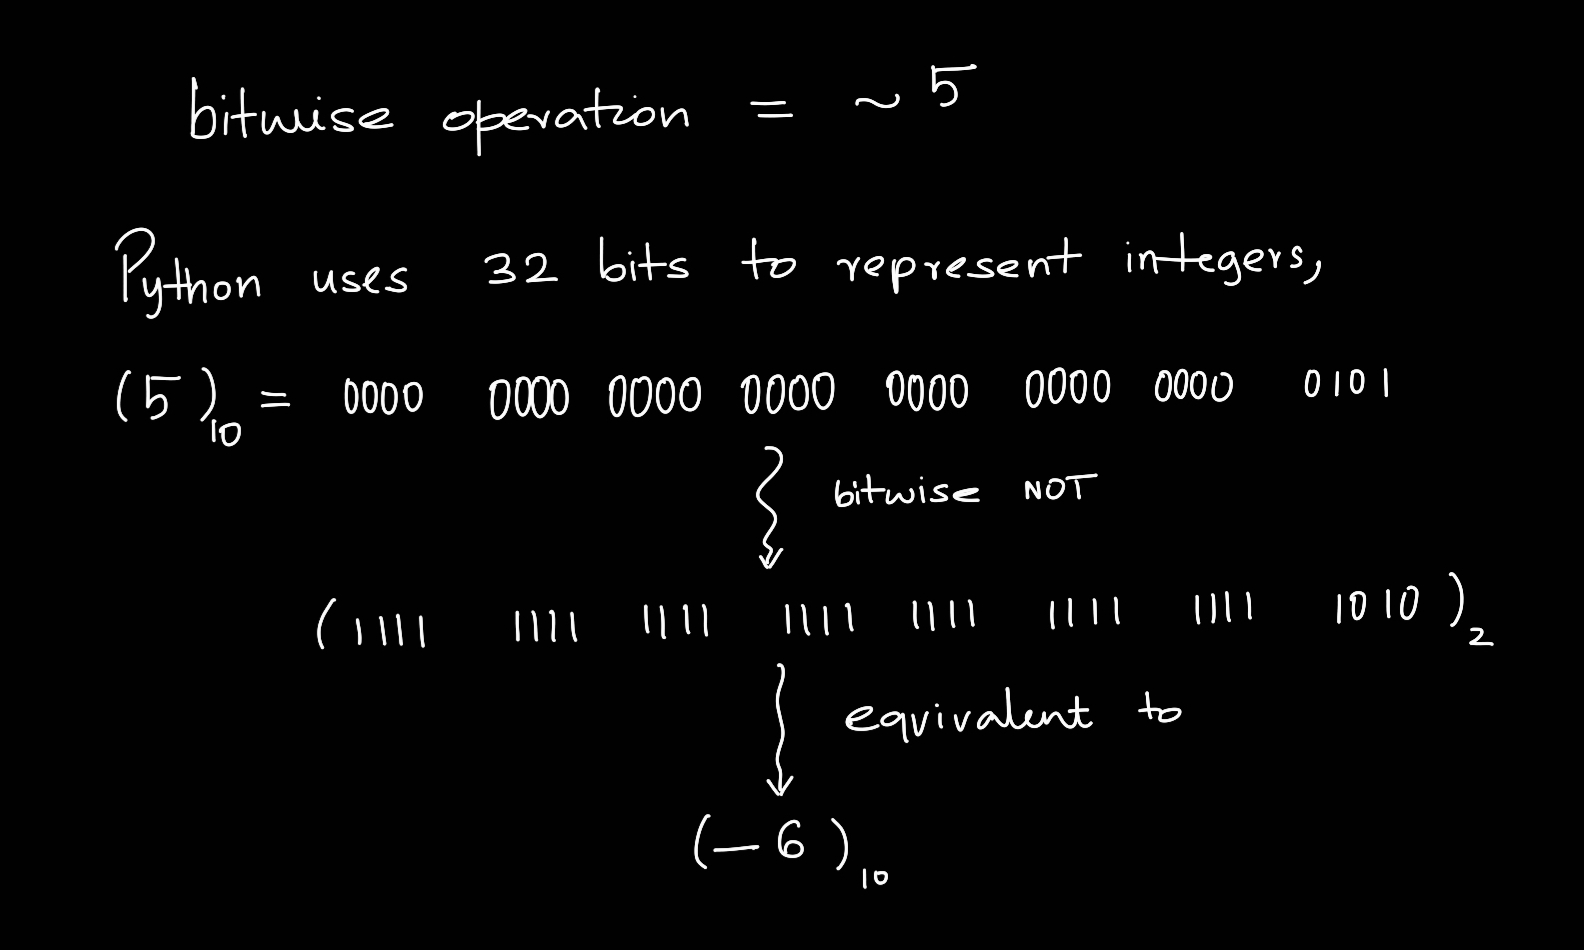 bitwise operation = ~ 5
Python uses 32 bits to represent integers,
(5)₁₀ = 0000 0000 0000 0000 0000 0000 0000 0101
bitwise NOT
(1111 1111 1111 1111 1111 1111 1111 1010)₂
equivalent to
(-6)₁₀